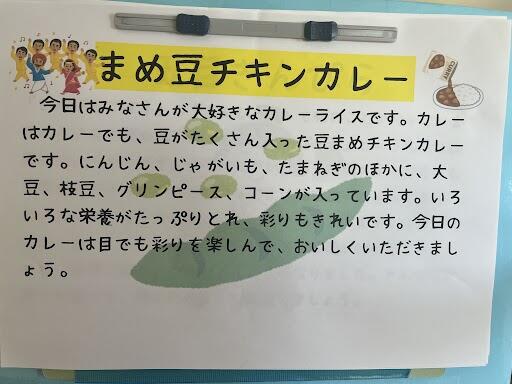 まめ豆チキンカレー
今日はみなさんが大好きなカレーライスです。カレー
はカレーでも、豆がたくさん入った豆まめチキンカレー
です。にんじん、じゃがいも、たまねぎのほかに、大
豆、枝豆、グリンピース、コーンが入っています。いろ
いろな栄養がたっぷりとれ、彩りもきれいです。今日の
カレーは目でも彩りを楽しんで、おいしくいただきまし
ょう。